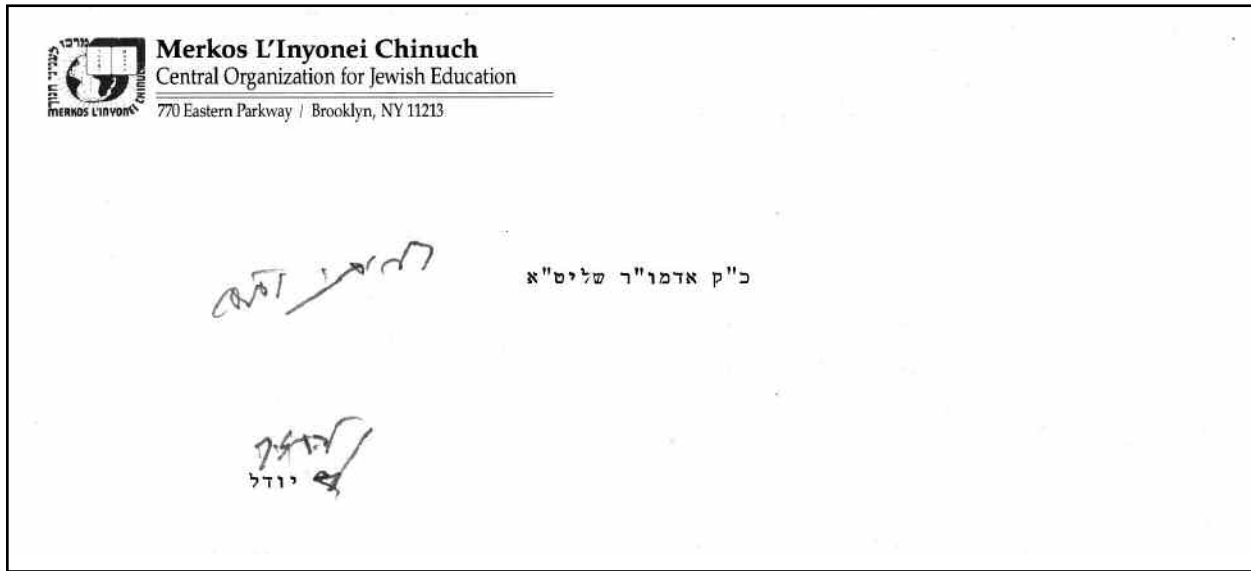 מרכז
לעניני חנוך
MERKOS L'INYONEI CHINUCH
Merkos L'Inyonei Chinuch
Central Organization for Jewish Education
770 Eastern Parkway / Brooklyn, NY 11213
כ"ק אדמו"ר שליט"א
יודל